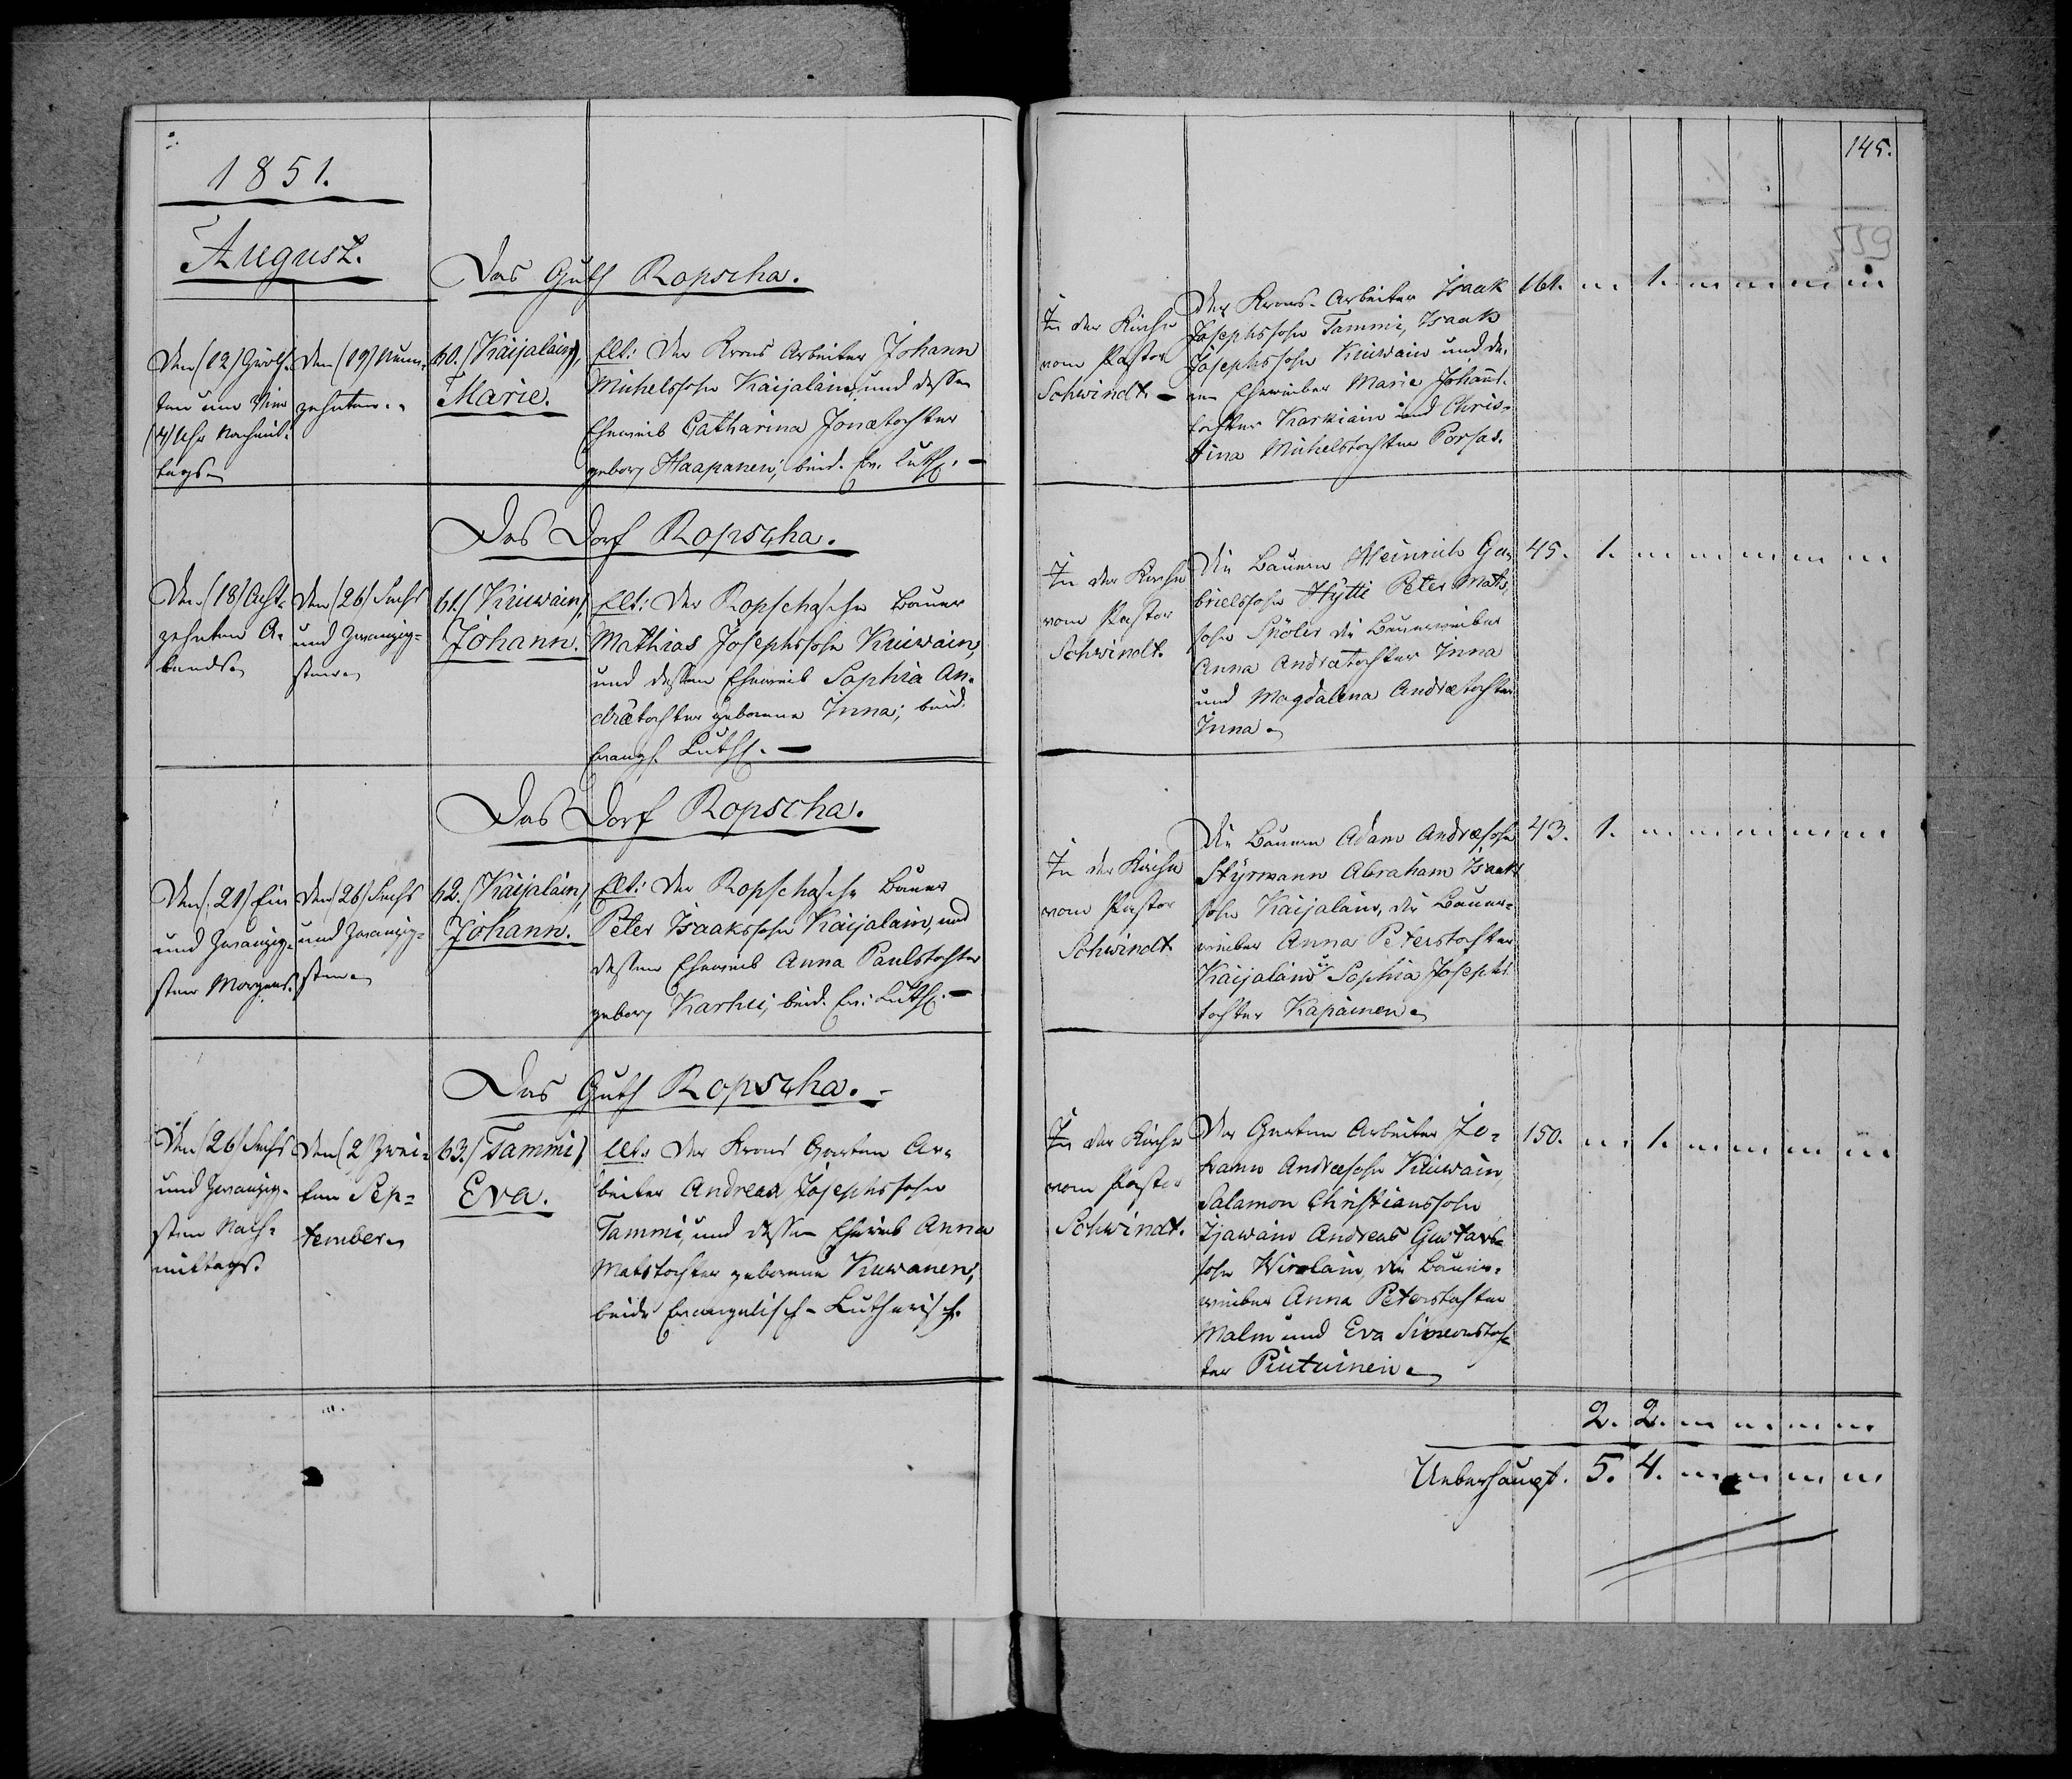 1851.
August.
Das Guth Ropscha.
Den (12) Zwölf-
ten um Vier
(4) Uhr Nachmit-
tags.
Den (19) Neun-
zehnten.
60. (Kaijalain),
Marie.
Elt: Der Krons Arbeiter Johann
Michelssohn Kaijalain, und dessen
Eheweib Catharina Jonætochter
gebor. Haapanen; beid. Ev. Luth.
Das Dorf Ropscha.
Den (18) Acht-
zehnten A-
bends.
Den (26) Sechs
und Zwanzig-
sten.
61. (Kiuwain),
Johann.
Elt: Der Ropschasche Bauer
Mathias Josephssohn Kiuwain,
und dessen Eheweib Sophia An-
drætochter geborene Inna; beid.
Evangl. Luth.
Das Dorf Ropscha.
Den (21) Ein
und Zwanzig-
sten Morgens.
Den (26) Sechs
und Zwanzig-
sten.
62. (Kaijalain)
Johann.
Elt: Der Ropschasche Bauer
Peter Isaakssohn Kaijalain, und
dessen Eheweib Anna Paulstochter
gebor. Karhu; beid. Ev. Luth.
Das Guth Ropscha.
Den (26) Sechs
und Zwanzig-
sten Nach-
mittags.
Den (2) Zwei-
ten Sep-
tember.
63. (Tammi)
Eva.
Elt. Der Krons Garten Ar-
beiter Andreas Josephssohn
Tammi, und dessen Eheweib Anna
Matstochter geborene Kiuwanen;
beide Evangelisch-Lutherisch.
145.
In der Kirche
vom Pastor
Schwindt.
Der Krons-Arbeiter Isaak
Josephssohn Tammi, Isaak
Josephssohn Kiuwain und de-
ren Eheweiber Maria Johans-
tochter Karkiain und Chris-
tina Michelstochter Porsas.
161. 1.
In der Kirche
vom Pastor
Schwindt.
Die Bauern Heinrich Ga-
brielssohn Hytti Peter Mats-
sohn Spoler die Bauerweiber
Anna Andrætochter Inna
und Magdalena Andrætochter
Inna.
45. 1.
In der Kirche
vom Pastor
Schwindt
Die Bauern Adam Andræsohn
Styrmann Abraham Isaaks
sohn Kaijalain, die Bauer-
weiber Anna Peterstochter
Kaijalain u Sophia Josephs-
tochter Kapainen.
43. 1.
In der Kirche
vom Pastor
Schwindt.
Der Garten Arbeiter Jo-
hann Andræsohn Kiuwain,
Salamon Christianssohn
Ijawain Andreas Gustavs-
sohn Wirolain, die Bauer-
weiber Anna Peterstochter
Malm und Eva Simonstoch-
ter Piutuinen.
150. 1.
2. 2.
Ueberhaupt. 5. 4.